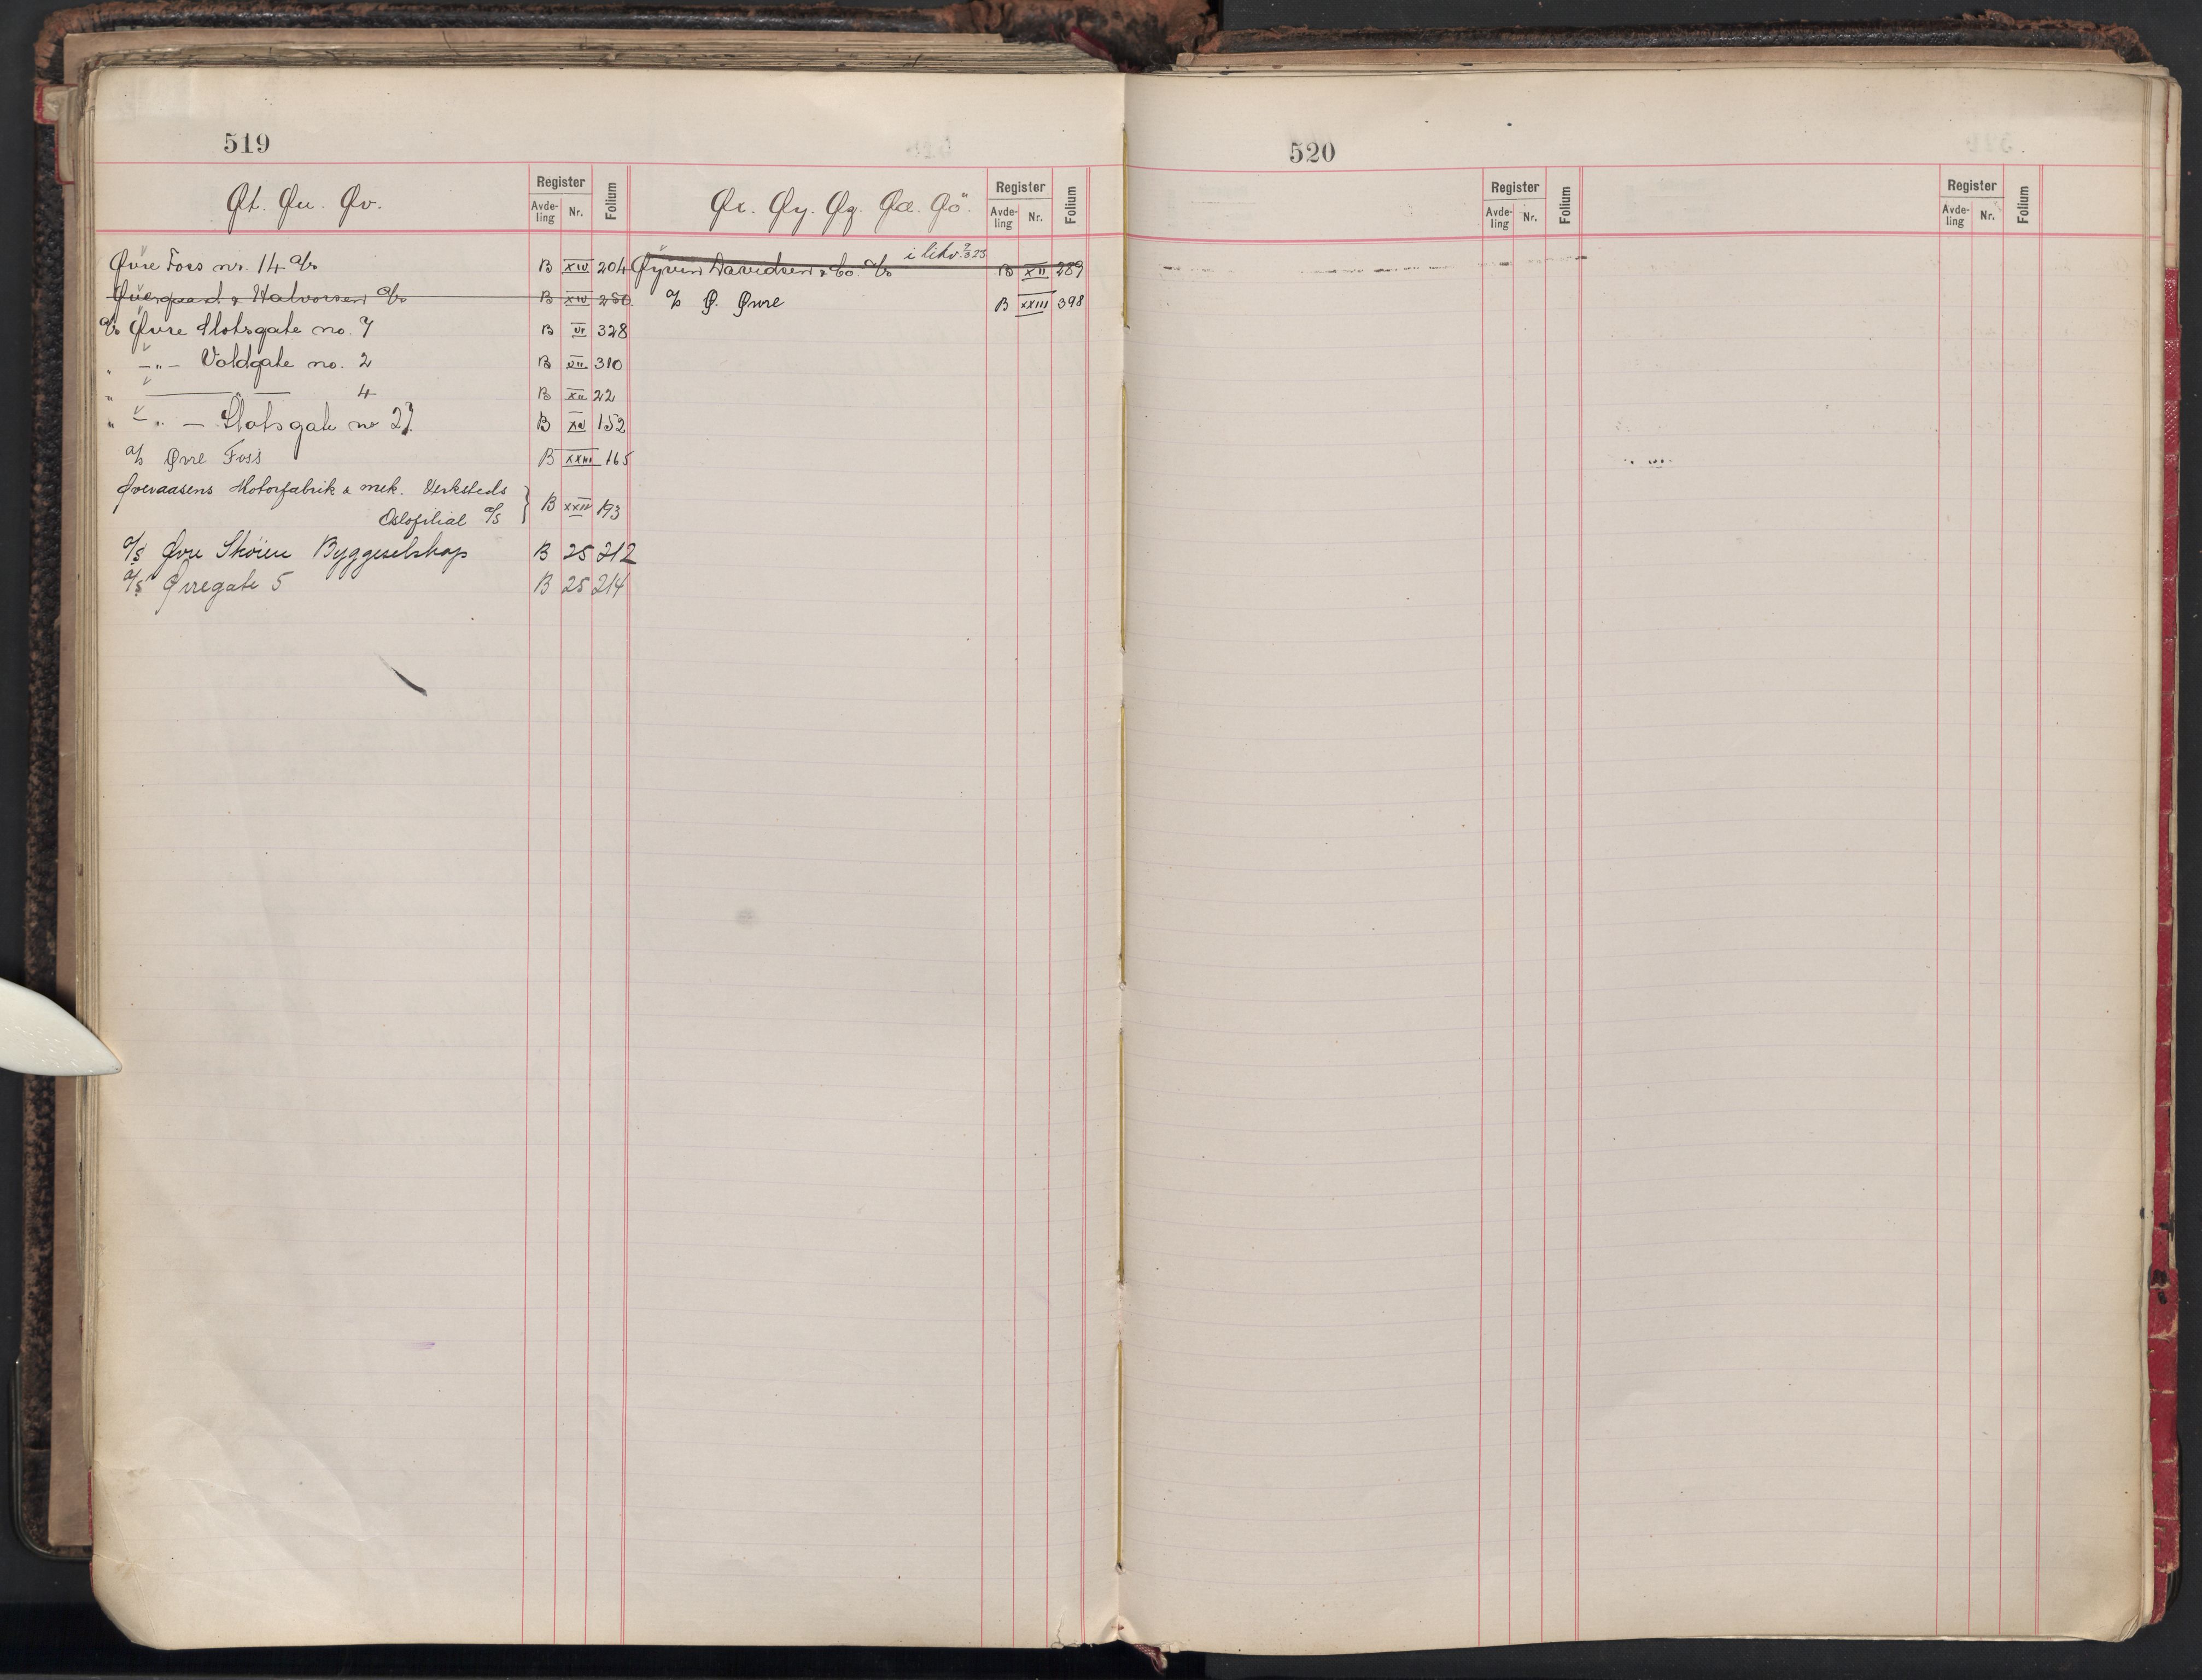 519
Øt. Øu. Øv.
Register
Avde-ling Nr. Folium
Øvre Foss nr. 14 A/s B XIV 204
Øvergaard & Halvorsen A/s B XIV 250
A/s Øvre Slotsgate no. 7 B VI 328
" -"- Voldgate no. 2 B VII 310
" — — 4 B XII 22
" -"- Slotsgate no 27. B XV 152
A/s Øvre Foss B XXIII 165
Øveraasens Motorfabrik & mek. Verksteds
Oslofilial A/S } B XXIV 193
A/S Øvre Skøien Byggeselskap B 25 212
A/S Ørregate 5 B 25 214
Øx. Øy. Øz. Øæ. Øö.
Register
Avde-ling Nr. Folium
i likv.
Øyvin Davidsen & Co. A/s B XII 289
A/s Ø. Øvre B XXIII 398
520
Register
Avde-ling Nr. Folium
Register
Avde-ling Nr. Folium